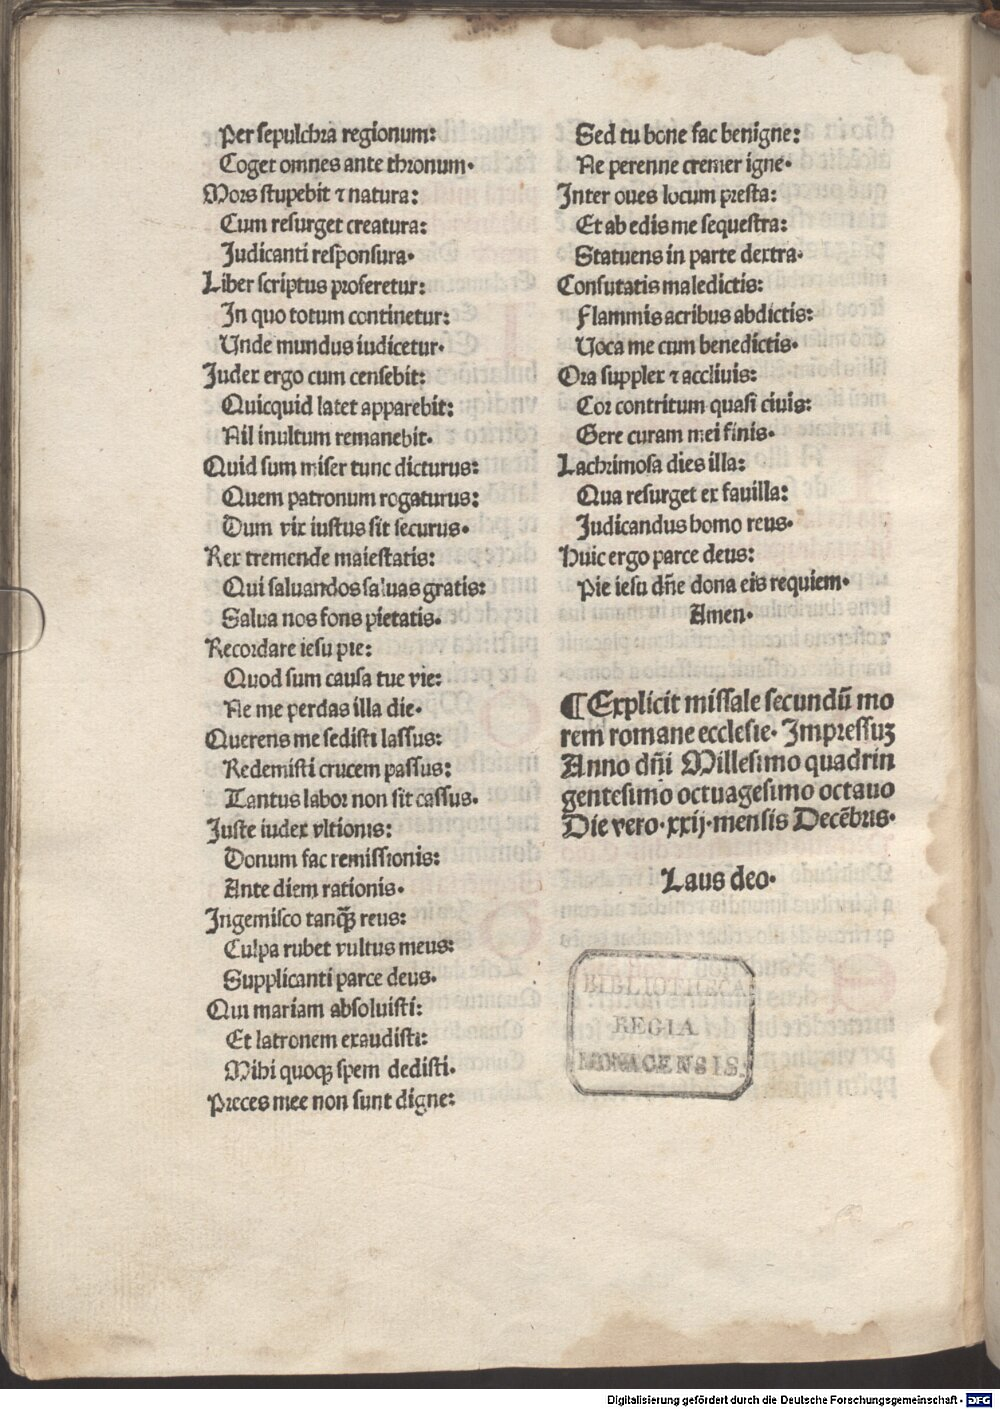 Per sepulchra regionum:
Coget omnes ante thronum.
Mors stupebit ⁊ natura:
Cum resurget creatura:
Judicanti responsura.
Liber scriptus proferetur:
In quo totum continetur:
Unde mundus iudicetur.
Judex ergo cum censebit:
Quicquid latet apparebit:
Nil inultum remanebit.
Quid sum miser tunc dicturus:
Quem patronum rogaturus:
Dum vix iustus sit securus.
Rex tremende maiestatis:
Qui saluandos saluas gratis:
Salua nos fons pietatis.
Recordare iesu pie:
Quod sum causa tue vie:
Ne me perdas illa die.
Querens me sedisti lassus:
Redemisti crucem passus:
Tantus labor non sit cassus.
Juste iudex vltionis:
Donum fac remissionis:
Ante diem rationis.
Ingemisco tanqꝫ reus:
Culpa rubet vultus meus:
Supplicanti parce deus.
Qui mariam absoluisti:
Et latronem exaudisti:
Mihi quoqꝫ spem dedisti.
Preces mee non sunt digne:
Sed tu bone fac benigne:
Ne perenne cremer igne.
Inter oues locum presta:
Et ab edis me sequestra:
Statuens in parte dextra.
Confutatis maledictis:
Flammis acribus abdictis:
Uoca me cum benedictis.
Ora supplex ⁊ accliuis:
Cor contritum quasi ciuis:
Gere curam mei finis.
Lachrimosa dies illa:
Qua resurget ex fauilla:
Judicandus homo reus.
Huic ergo parce deus:
Pie iesu dn̄e dona eis requiem.
Amen.
¶ Explicit missale secundū mo
rem romane ecclesie. Impressuꝫ
Anno dn̄i Millesimo quadrin
gentesimo octuagesimo octauo
Die vero .xxij. mensis Decēbris.
Laus deo.
BIBLIOTHECA
REGIA
MONACENSIS.
Digitalisierung gefördert durch die Deutsche Forschungsgemeinschaft - DFG